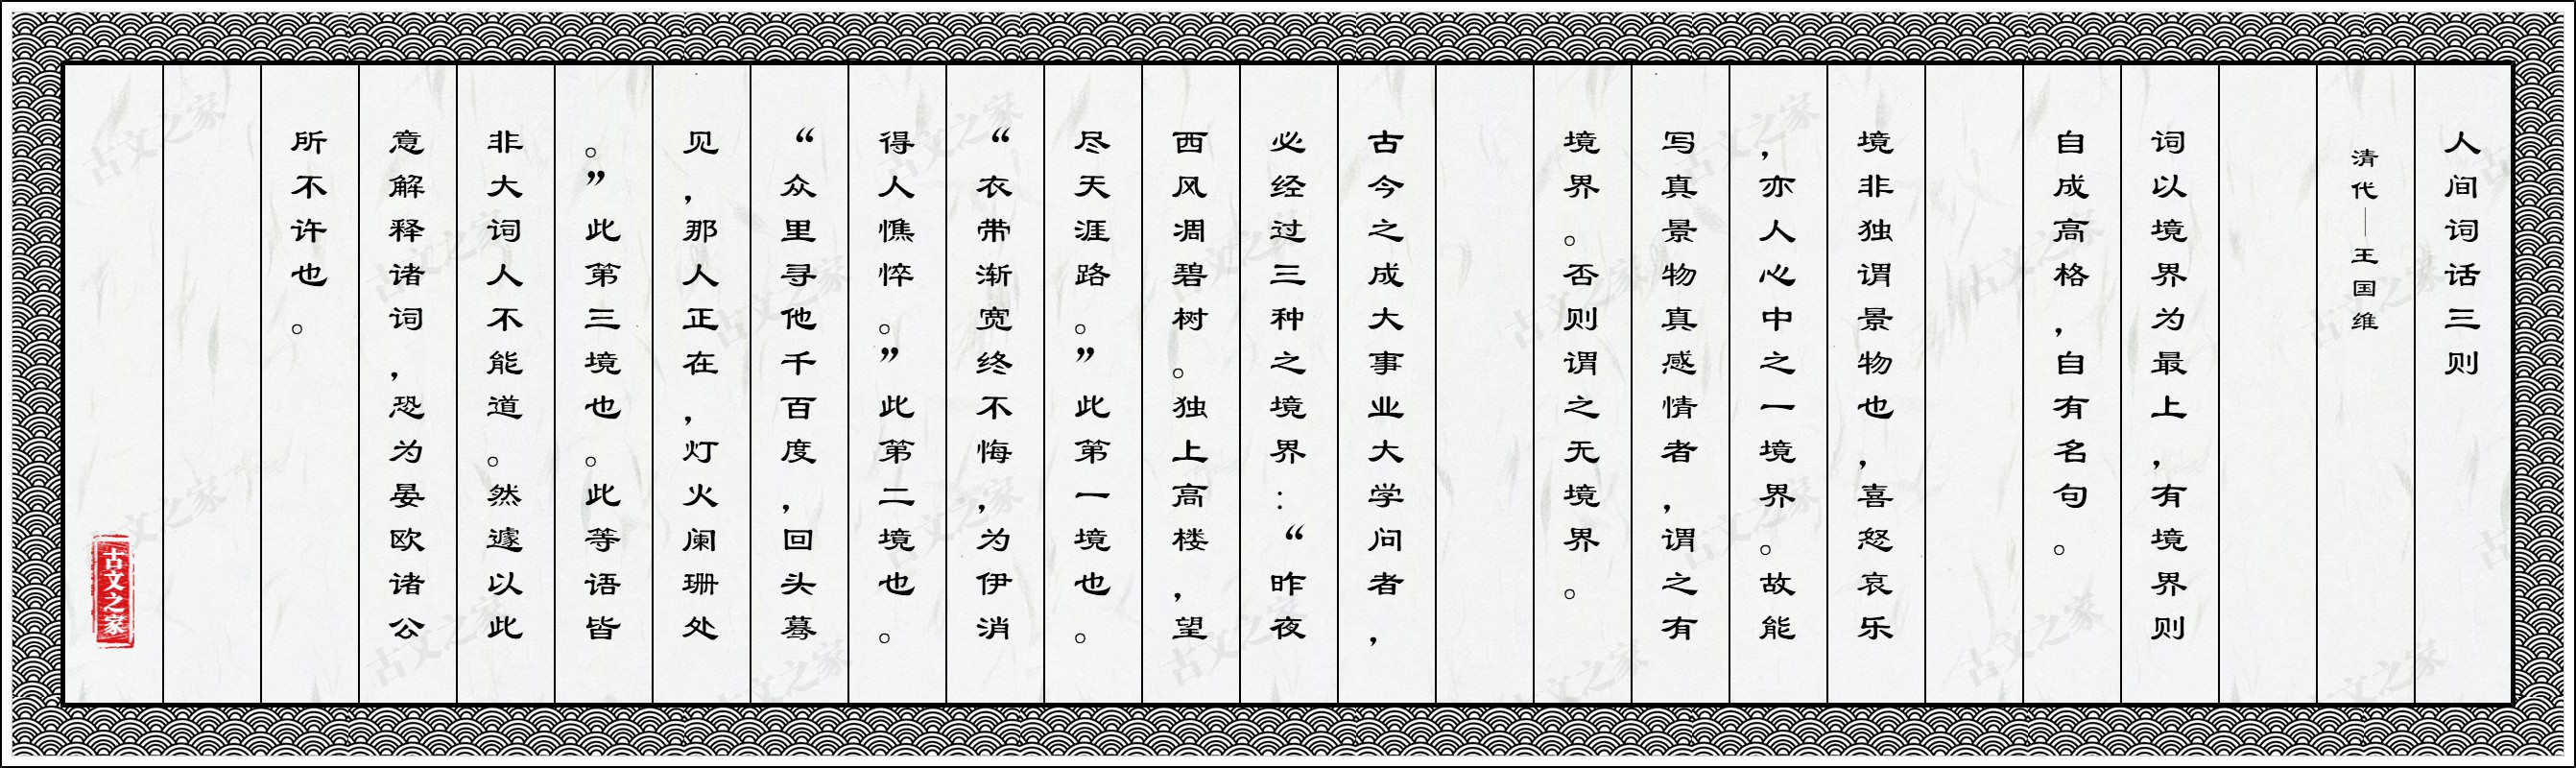 人间词话三则
清代—王国维
词以境界为最上，有境界则
自成高格，自有名句。
境非独谓景物也，喜怒哀乐
，亦人心中之一境界。故能
写真景物真感情者，谓之有
境界。否则谓之无境界。
古今之成大事业大学问者，
必经过三种之境界：“昨夜
西风凋碧树。独上高楼，望
尽天涯路。”此第一境也。
“衣带渐宽终不悔，为伊消
得人憔悴。”此第二境也。
“众里寻他千百度，回头蓦
见，那人正在，灯火阑珊处
。”此第三境也。此等语皆
非大词人不能道。然遽以此
意解释诸词，恐为晏欧诸公
所不许也。
古文之家